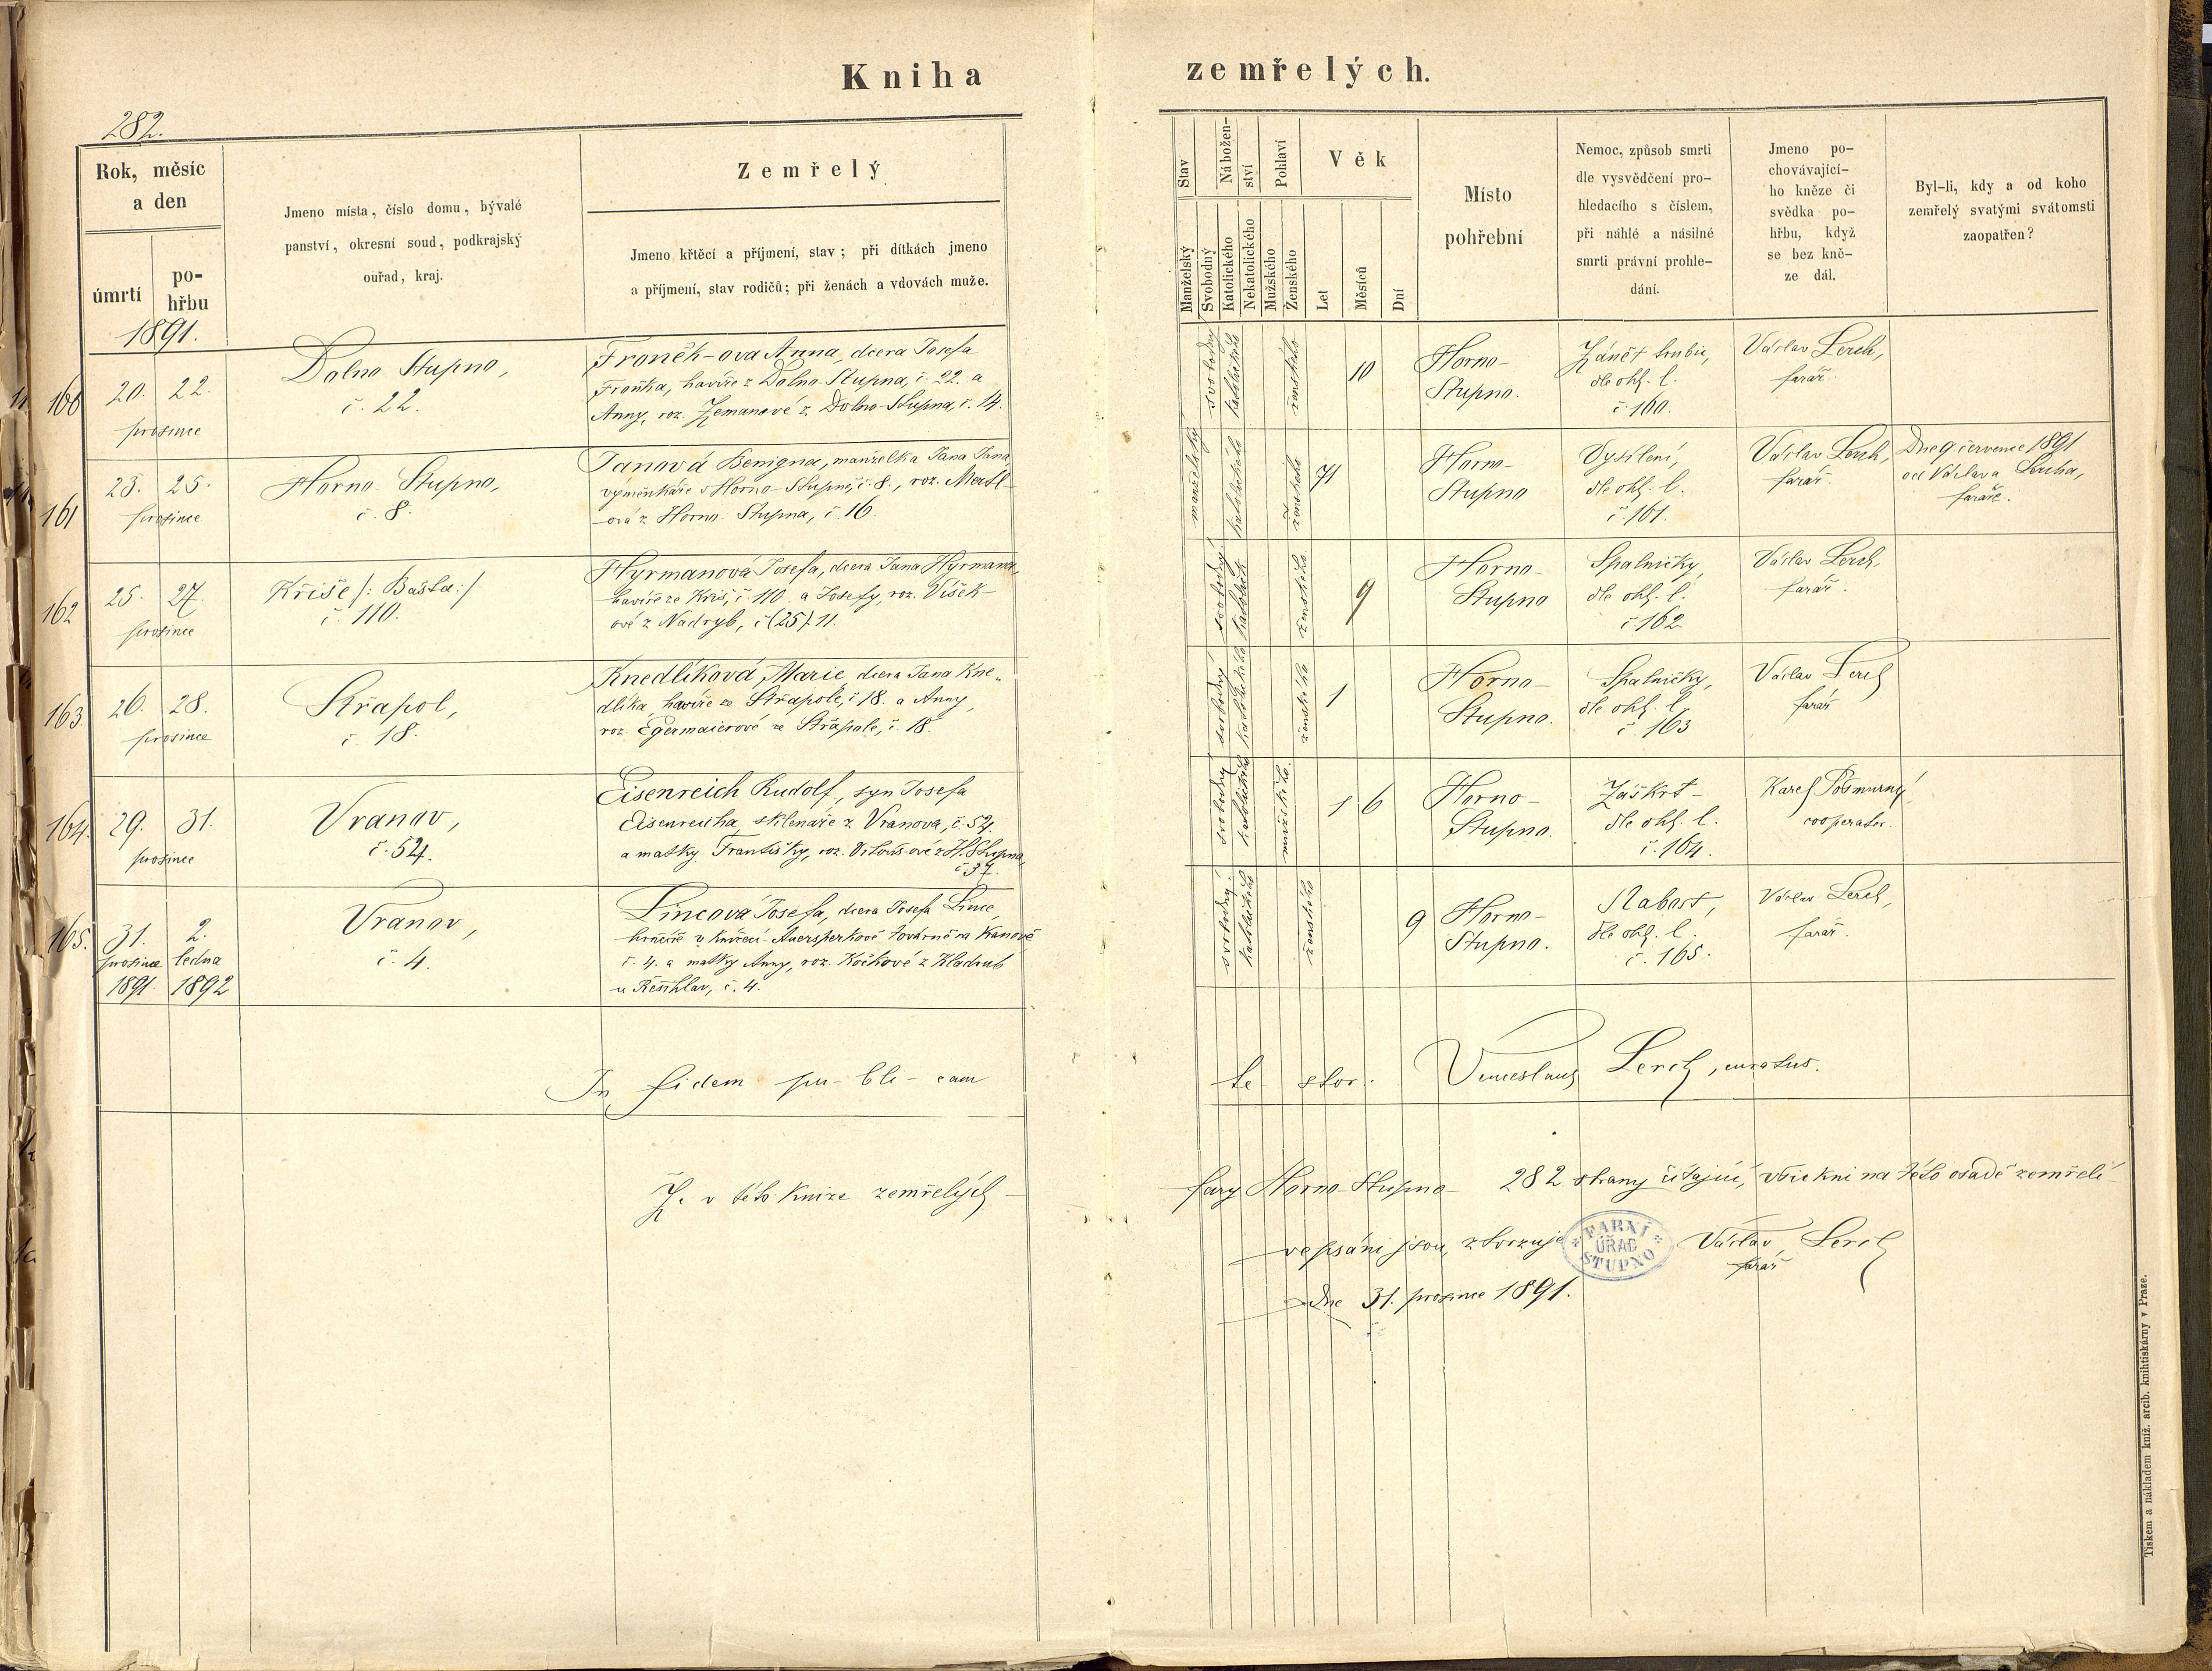 Kniha zemřelých.
282.
Rok, měsíc a den
úmrtí
pohřbu
Jmeno místa, číslo domu, bývalé
panství, okresní soud, podkrajský
ouřad, kraj.
Zemřelý
Jmeno křtěcí a příjmení, stav; při dítkách jmeno
a příjmení, stav rodičů; při ženách a vdovách muže.
Stav
Manželský
Svobodný
Náboženství
Katolického
Nekatolického
Pohlaví
Mužského
Ženského
Věk
Let
Měsíců
Dní
Místo
pohřební
Nemoc, způsob smrti
dle vysvědčení pro-
hledacího s číslem,
při náhlé a násilné
smrti právní prohle-
dání.
Jmeno po-
chovávající-
ho kněze či
svědka po-
hřbu, když
se bez kně-
ze dál.
Byl-li, kdy a od koho
zemřelý svatými svátomsti
zaopatřen?
1891.
160
20. 22.
prosince
Dolno Stupno,
č. 22.
Froněk-ova Anna, dcera Josefa
Froňka, havíře z Dolno-Stupna, č. 22. a
Anny, roz. Zemanové z Dolno-Stupna, č. 14.
svobodný
katolického
ženského
10
Horno-
Stupno.
Zánět hrubic,
dle ohl. l.
č. 160.
Václav Lerch,
farář.
161
23. 25.
prosince
Horno-Stupno,
č. 8.
Janová Benigna, manželka Jana Jana
výměnkáře v Horno-Stupně, č. 8., roz. Matl-
ová z Horno-Stupna, č. 16.
manželský
katolického
ženského
71
Horno-
Stupno
Vysílení,
dle ohl. l.
č. 161.
Václav Lerch,
farář.
Dne 9 července 1891
od Václava Lercha,
faráře.
162
25. 27.
prosince
Kříše /: Bašta :/
č. 110.
Hyrmanová Josefa, dcera Jana Hyrmana,
havíře ze Kříš, č. 110. a Josefy, roz. Víšek-
ové z Nadryb, č (25) 11.
svobodný
katolick.
ženského
9
Horno-
Stupno
Spalničky,
dle ohl. l.
č. 162.
Václav Lerch,
farář.
163
26. 28.
prosince
Střapol,
č. 18.
Knedlíková Marie, dcera Jana Kne-
dlíka, havíře ze Střapole, č 18. a Anny,
roz. Egermaierové ze Střapole, č. 18.
svobodný
katolického
ženského
1
Horno-
Stupno.
Spalničky,
dle ohl. l.
č. 163
Václav Lerch
farář
164.
29. 31.
prosince
Vranov,
č. 54.
Eisenreich Rudolf, syn Josefa
Eisenreicha, sklenáře z Vranova, č. 54.
a matky Františky, roz. z H. Stupna
č 37.
svobodný
katolického
mužského.
1 6
Horno-
Stupno.
Záškrt-
dle ohl. l.
č. 164.
Karel Pošmurný,
cooperator.
165.
31. 2.
prosince ledna
1891. 1892
Vranov,
č. 4.
Lincová Josefa, dcera Josefa Lince,
v knížecí-Auersperkově továrně na
č. 4. a matky Anny, roz. Kočkové z Kladrub
u č. 4.
svobodný.
katolického
ženského
9
Horno-
Stupno.
Slabost,
dle ohl. l.
č. 165.
Václav Lerch,
farář.
In fidem pu-bli-cam te stor. Venceslaus Lerch, curatus.
Že v této knize zemřelých- fary Horno-Stupno- 282 strany čítající, všickni na této osadě zemřelí
vepsáni jsou, ztvrzuje Václav Lerch
farář
dne 31. prosince 1891.
FARNÍ
ÚŘAD
STUPNO
Tiskem a nákladem kníž. arcib. knihtiskárny v Praze.